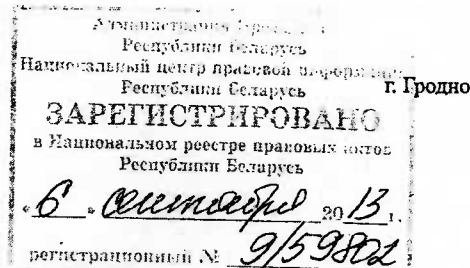 Администрация
Республики Беларусь
Национальный центр правовой информации
Республики Беларусь
г. Гродно
ЗАРЕГИСТРИРОВАНО
в Национальном реестре правовых актов
Республики Беларусь
«6» сентября 2013 г.
регистрационный № 9/59802